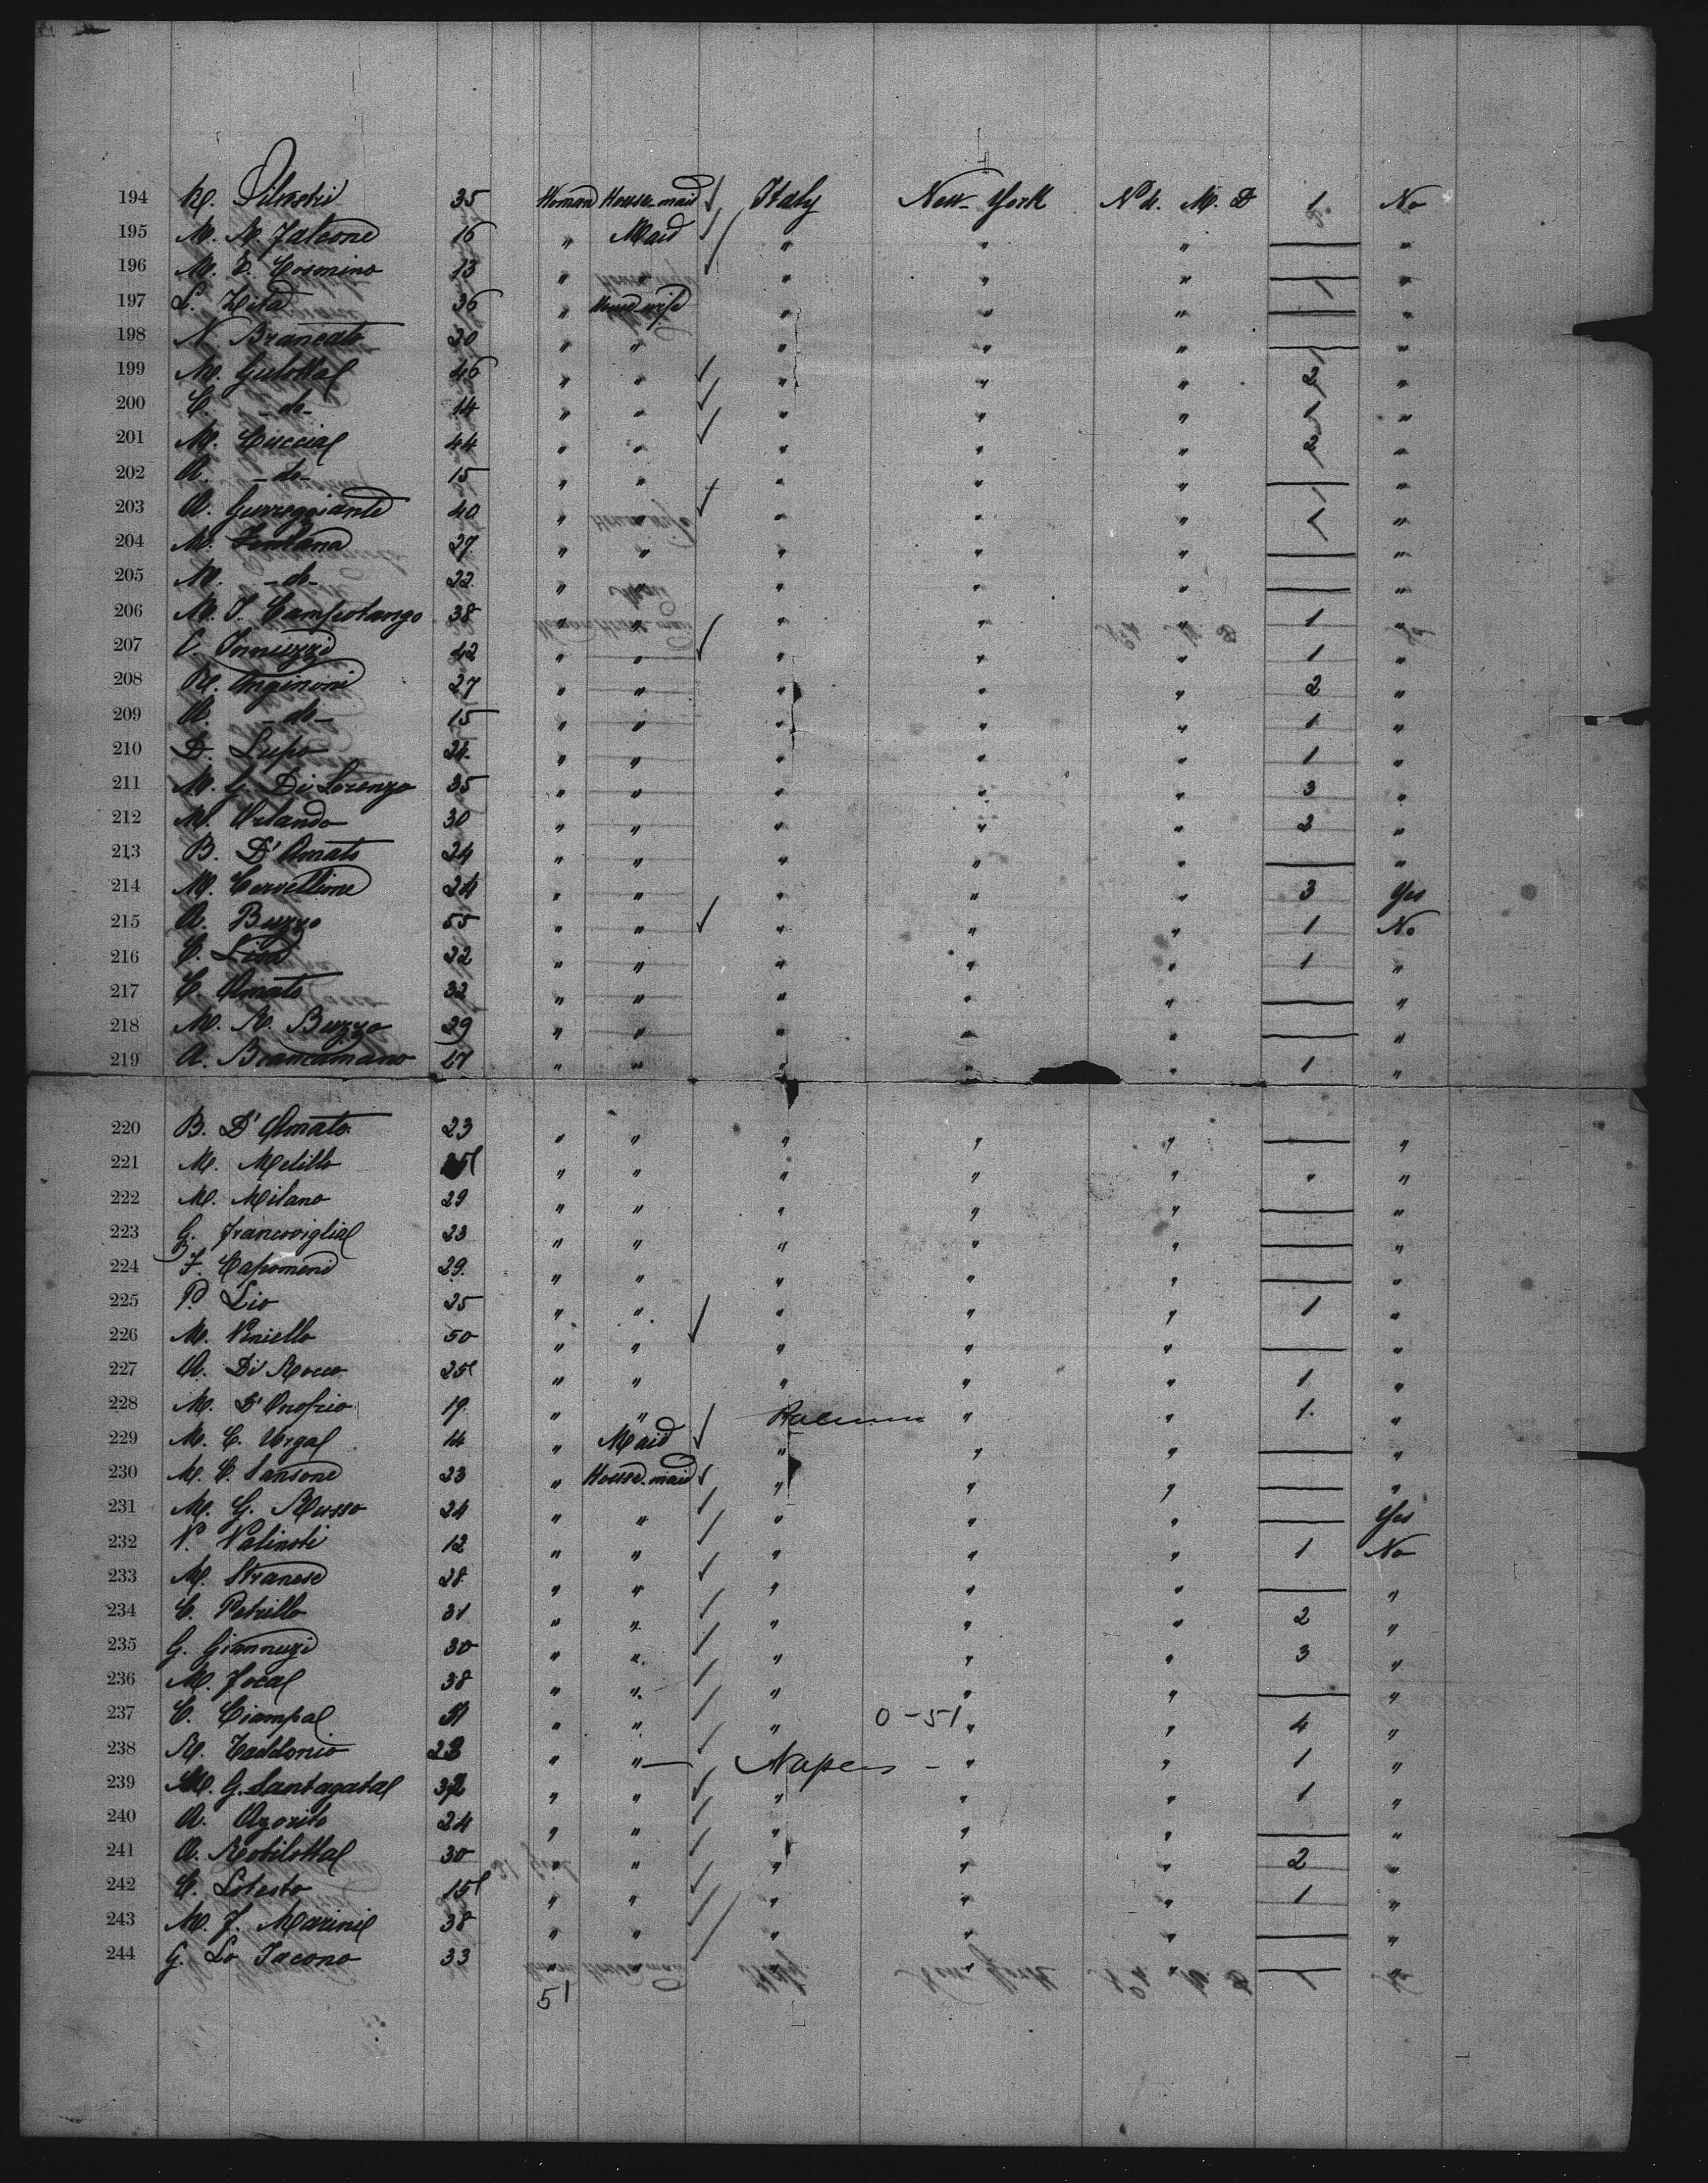 194 M. Silvestri 35 Woman House-maid Italy New-York Nº 4. M. D 1 No
195 M. R. Falcone 16 " Maid " " " — "
196 M. E. Cosmino 13 " " " " — "
197 S. Zita 36 " House wife " " " — "
198 N. Brancato 20 " " " " " — "
199 M. Gulotta 46 " " " " " 2 "
200 C. -do- 14 " " " " " 1 "
201 M. Cuccia 44 " " " " " 2 "
202 A. -do- 15 " " " " " — "
203 A. Gurreggiante 40 " " " " "
204 M. Fontana 27 " " " " " — "
205 M. -do- 22 " " " " " — "
206 M. J. Campolongo 38 " " " " " 1 "
207 C. Iannuzzi 42 " " " " " 1 "
208 R. Anginoni 27 " " " " " 2 "
209 A. -do- 15 " " " " " 1 "
210 D. Lupo 24 " " " " " 1 "
211 M. G. Di Lorenzo 35 " " " " " 3 "
212 M. Orlando 30 " " " " " 2 "
213 B. D'Amato 24 " " " " " — "
214 M. Cervellione 24 " " " " " 3 Yes
215 A. Buzzo 55 " " " " " 1 No
216 C. Lisa 22 " " " " " 1 "
217 C. Amato 32 " " " " " — "
218 M. R. Buzzo 29 " " " " " — "
219 A. Brancamano 17 " " " " " 1 "
220 B. D'Amato 23 " " " " " — "
221 M. Melillo " " " " " " "
222 M. Milano 29 " " " " " — "
223 G. Francoviglia 23 " " " " " — "
224 F. Capomene 29 " " " " " — "
225 P. Lio 25 " " " " " 1 "
226 M. Viniello 50 " " " " " — "
227 A. Di Rocco 25 " " " " " 1 "
228 M. D'Onofrio 19 " " " " 1 "
229 M. C. Urga 14 " Maid " " " — "
230 M. C. Sansone 23 " House-maid " " " — "
231 M. G. Russo 24 " " " " " — Yes
232 V. Valinoti 12 " " " " " 1 No
233 M. Stranese 28 " " " " " — "
234 C. Petrillo 31 " " " " " 2 "
235 G. Giannuzi 30 " " " " " 3 "
236 M. Foca 38 " " " " " — "
237 C. Ciampa " " " 0-51 " " 4 "
238 R. Taddonio " " — " " 1 "
239 M. G. Santagata 32 " " " " " 1 "
240 A. Azorito 24 " " " " " — "
241 A. Robilotta 30 " " " " " 2 "
242 C. Lotesto 15 " " " " " 1 "
243 M. F. Marini 38 " " " " " — "
244 G. Lo Iacono 33 " " " " " — "
51